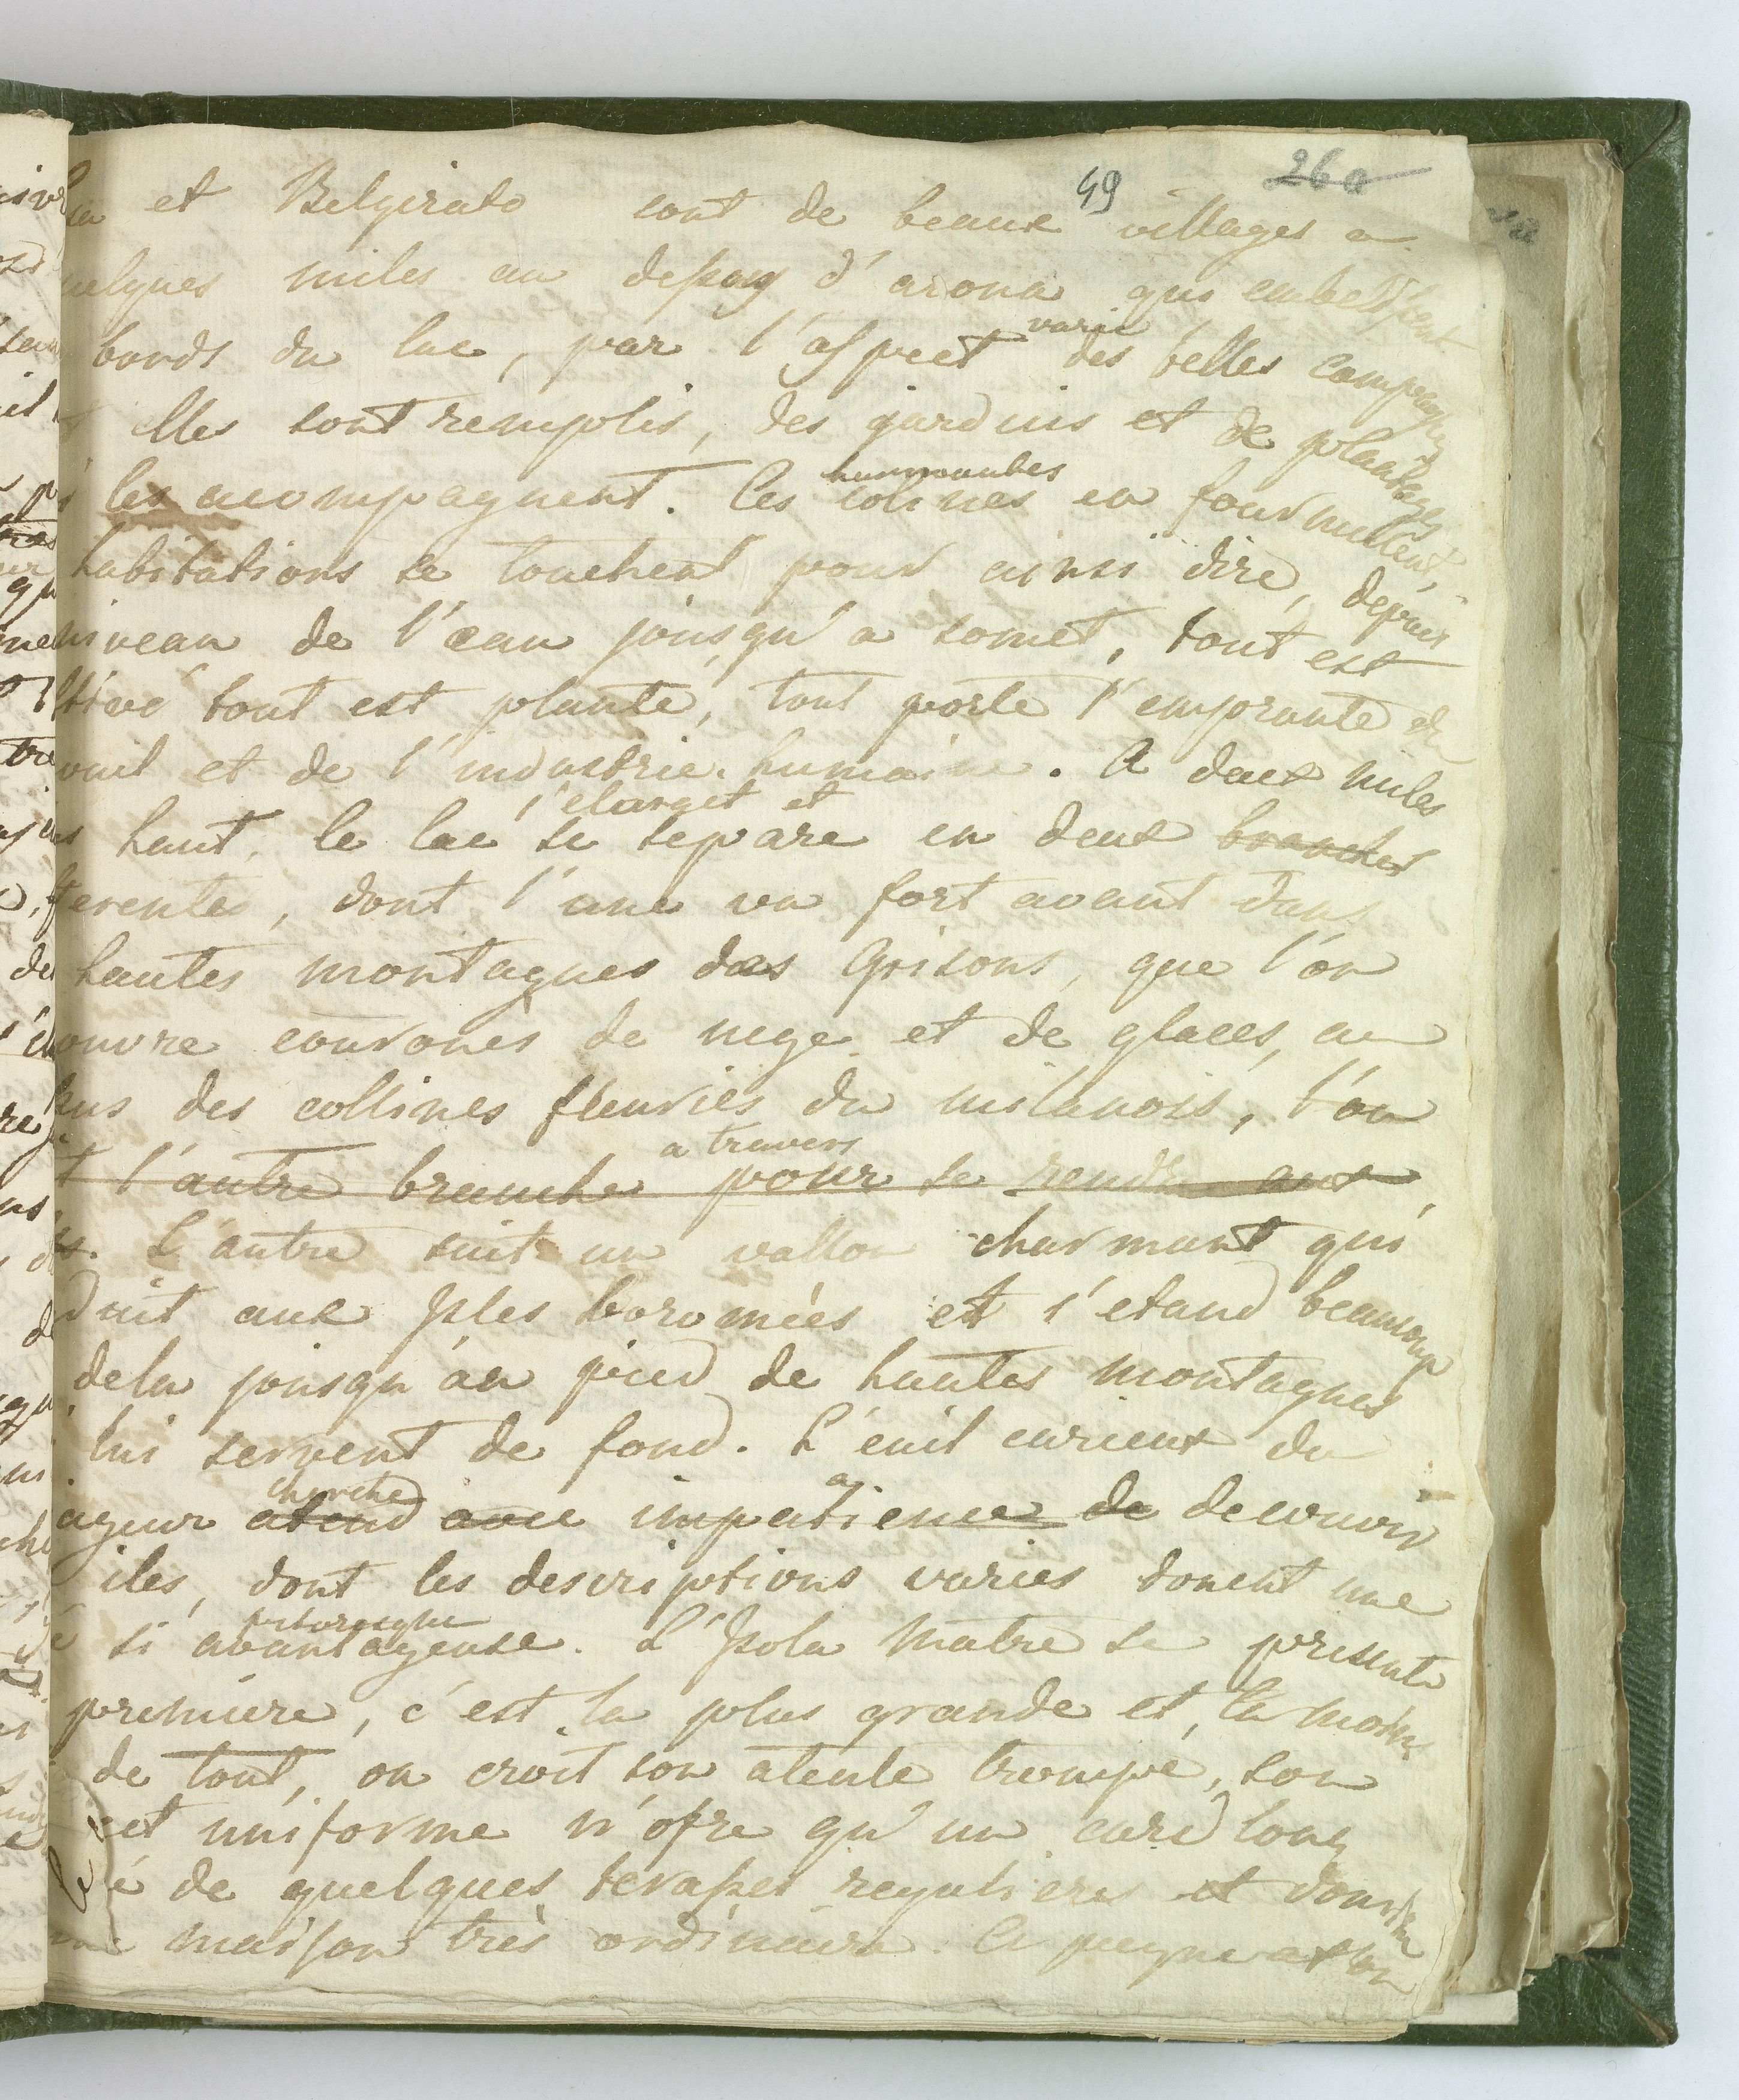 49 260
et Belgirato sont de beaux villages a
uelques miles au dessus d'arona qui embelissent
varié
bords du lac, par l'aspect des belles campagnes
elles sont remplis, des jardins et de plantages
les acompagnent. Ces colines en fourmillent,
habitations se touchent pour ainsi dire, depuis
niveau de l'eau jousqu'a somet, tout est
ltivé tout est planté, tout porte l'emprante du
vail et de l'industrie humaine. A deux miles
s'elargit et
haut, le lac se separe en deux branches
ferentes, dont l'une va fort avant dans
hautes montagnes des Grisons, que l'on
ouvre couronés de nege et de glaces, au
sus des collines fleuries du milanois, l'on
a travers
t l'autre branche pour se rendre aux
L'autre suit un vallon charmant qui
duit aux Isles boromées et s'etand beaucoup
dela jousqu'au pied de hautes montagnes
lui servent de fond. L'euil curieux du
cherche a
ageur atend avec impatience de decouvrir
iles, dont les descriptions variés donent une
pitoresque
si avantageuse. L'Isola Matre se presente
premiere, c'est la plus grande et, la moins
de tout, on croit son atente trompé, son
et uniforme n'ofre qu'un caré long
é de quelques terasses regulieres et
maison très ordinaire. A peyne